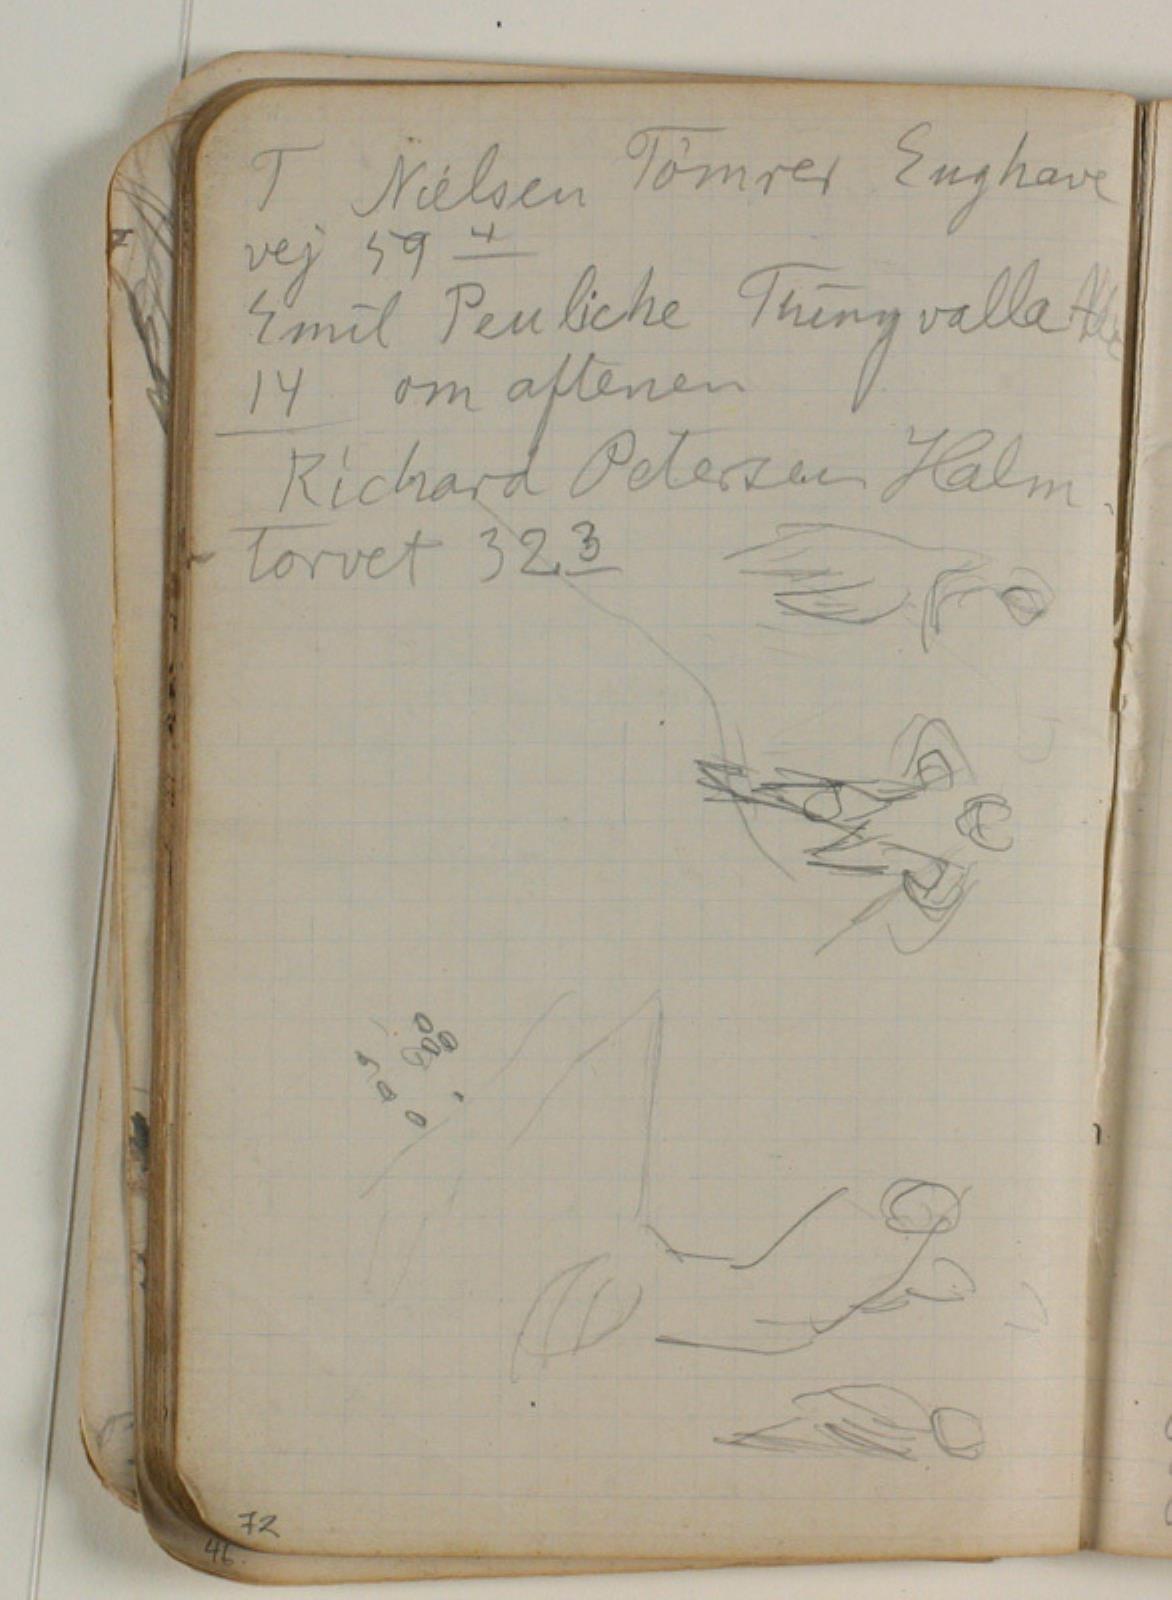 T Nielsen Tömrer Enghave
vej 59 4
Emil Peuliche Thingvalla Alle
14 om aftenen
Richard Petersen Halm.
torvet 32 3
72
46.